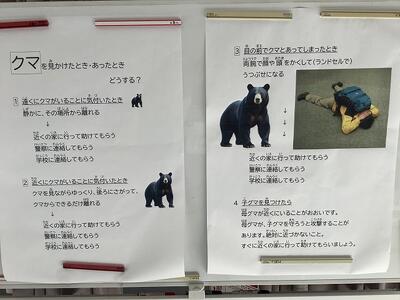 クマを見かけたとき・あったとき
どうする？
1 遠くにクマがいることに気付いたとき
静かに、その場所から離れる
↓
近くの家に行って助けてもらう
警察に連絡してもらう
学校に連絡してもらう
2 近くにクマがいることに気付いたとき
クマを見ながらゆっくり、後ろにさがって、
クマからできるだけ離れる
↓
近くの家に行って助けてもらう
警察に連絡してもらう
学校に連絡してもらう
3 目の前でクマとあってしまったとき
両腕で顔や頭をかくして(ランドセルで)
うつぶせになる
↓
↓
↓
近くの家に行って助けてもらう
警察に連絡してもらう
学校に連絡してもらう
4 子グマを見つけたら
母グマが近くにいることがおおいです。
母グマが、子グマを守ろうと攻撃することが
あります。絶対に近づかないこと。
すぐに近くの家に行って助けてもらいましょう。